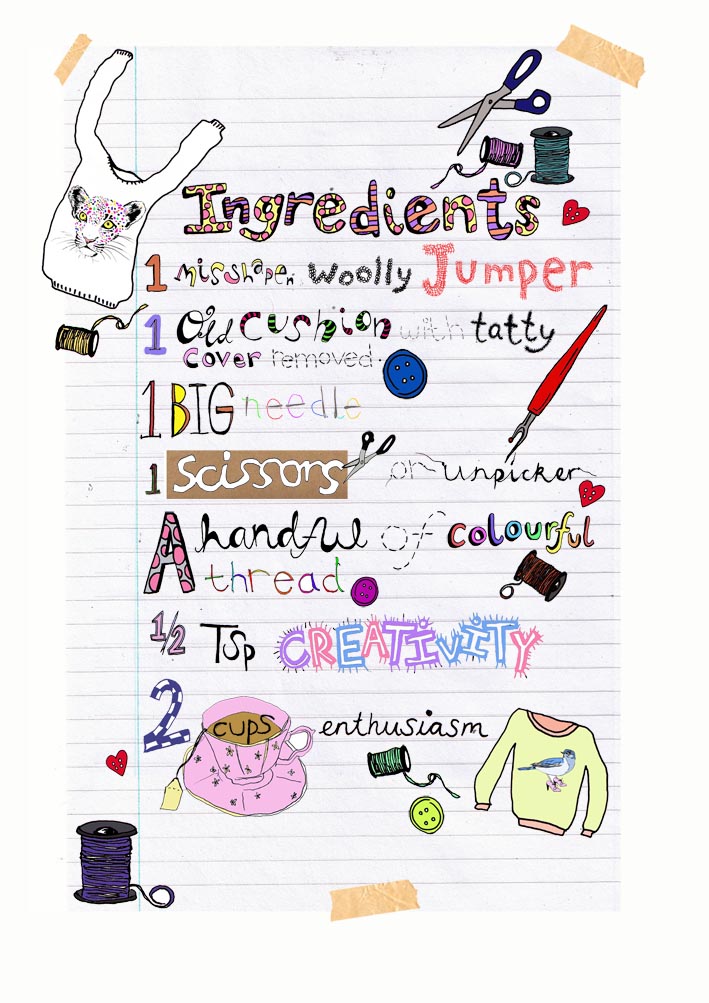 Ingredients
1 misshapen woolly Jumper
1 Old cushion with tatty
cover removed.
1 BIG needle
1 Scissors or unpicker
A handful of colourful
thread
1/2 Tsp CREATiViTY
2 cups enthusiasm